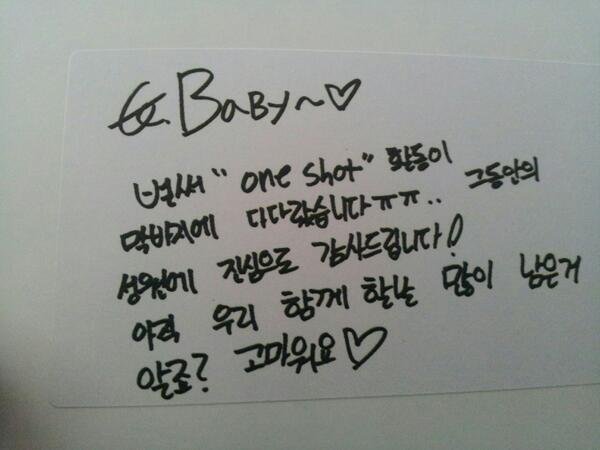 Baby~♡
벌써 "one shot" 활동이
막바지에 다다랐습니다ㅠㅠ.. 그동안의
성원에 진심으로 감사드립니다!
아직 우리 함께 할날 많이 남은거
알죠? 고마워요♡